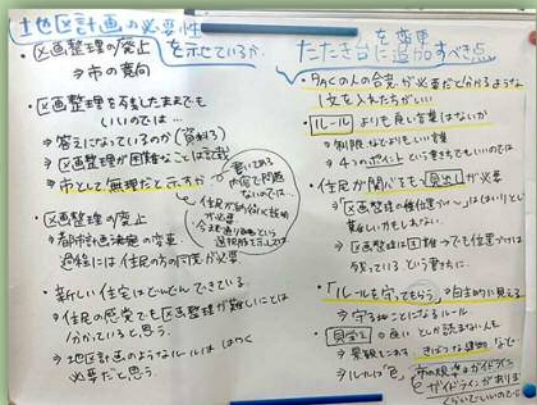 地区計画の必要性
を示せているか。
・区画整理の廃止
→市の意向
・区画整理を残したままでも
いいのでは…
→答えになっているのか(資料3)
→区画整理が困難なことは記載
→市として無理だと示すか
書いてある
内容で問題
ないのでは
住民が納得いく説明
が必要
今まで通りという
選択肢を示しては
・区画整理の廃止
→都市計画決定の変更
過程には住民の方の同意が必要
・新しい住宅はどんどんできている。
→住民の感覚でも区画整理が難しいことは
分かっていると思う。
→地区計画のようなルールははやく
必要だと思う。
たたき台に追加すべき点
を変更
・多くの人の合意が必要だと分かるような
1文を入れた方がいい
・ルールよりも良い言葉はないか
→制限などよりもいい言葉
→4つのポイントという書き方でもいいのでは
・住民が関心をもつ見出しが必要
→「区画整理の位置づけ〜」は
難しいかもしれない。
→区画整理は困難→でも位置づけは
残っているという書き方に
・「ルールを守ってもらう」→自主的に見える
→守ることになるルール
・見出ししか読まない人も
→景観を こわす きばつな建物 など
→ルールは「色」
市の規準 ガイドライン
ガイドラインがあります
くらいでいいのでは